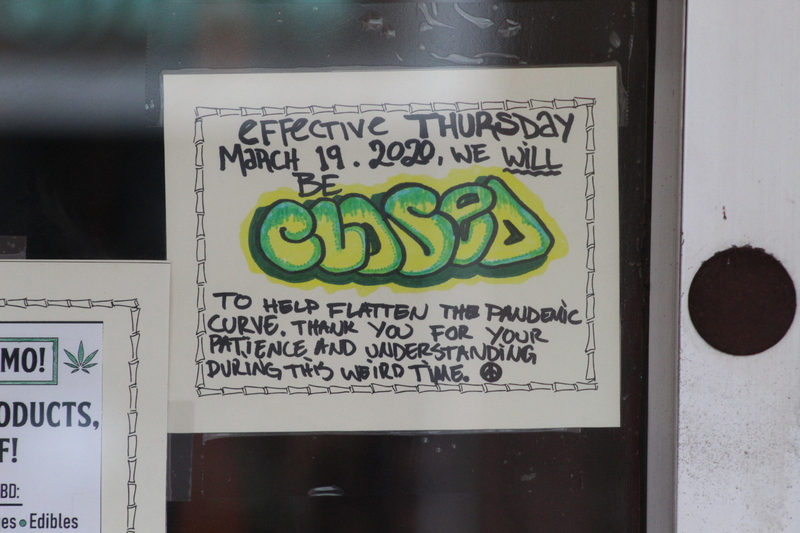 effective THURSDAY
MARCH 19. 2020, WE WILL
BE
CLOSED
TO HELP FLATTEN THE PANDEMIC
CURVE. THANK YOU FOR YOUR
PATIENCE AND UNDERSTANDING
DURING THIS WEIRD TIME.
MO!
ODUCTS,
F!
BD:
es • Edibles